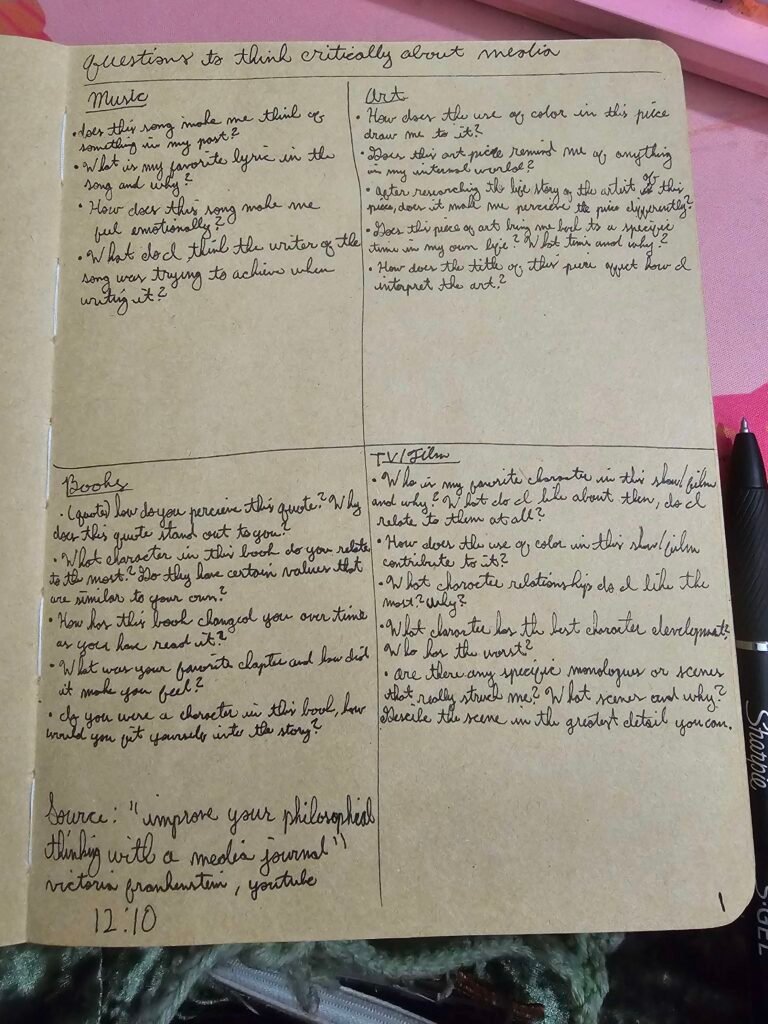 Questions to think critically about media
Music
• does this song make me think of
something in my past?
• What is my favorite lyric in the
song and why?
• How does this song make me
feel emotionally?
• What do I think the writer of the
song was trying to achieve when
writing it?
Art
• How does the use of color in this piece
draw me to it?
• Does this art piece remind me of anything
in my internal world?
• After researching the life story of the artist of this
piece, does it make me percieve the piece differently?
• Does this piece of art bring me back to a specific
time in my own life? What time and why?
• How does the title of this piece affect how I
interpret the art?
Books
• (quote) how do you percieve this quote? Why
does this quote stand out to you?
• What character in this book do you relate
to the most? Do they have certain values that
are similar to your own?
• How has this book changed you over time
as you have read it?
• What was your favorite chapter and how did
it make you feel?
• If you were a character in this book, how
would you put yourself into the story?
Source: "improve your philosophical
thinking with a media journal"
victoria frankenstein, youtube
12:10
TV/Film
• Who is my favorite character in this show/film
and why? What do I like about them, do I
relate to them at all?
• How does the use of color in this show/film
contribute to it?
• What character relationship do I like the
most? Why?
• What character has the best character development?
Who has the worst?
• are there any specific monologues or scenes
that really struck me? What scenes and why?
Describe the scene in the greatest detail you can.
1
Sharpie
S·GEL